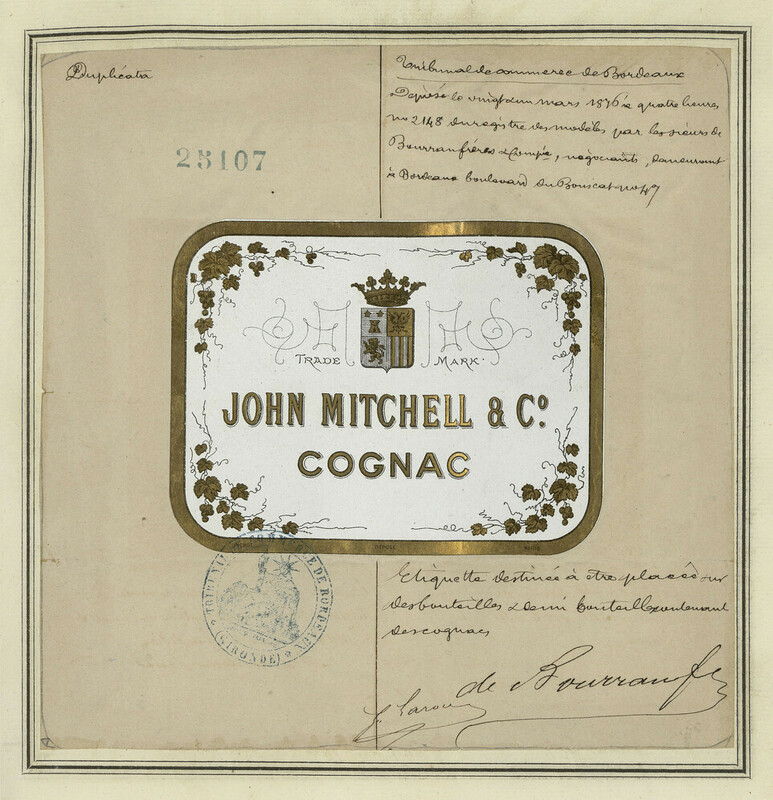 Duplicata
Tribunal de commerce de Bordeaux
Déposé le vingt un mars 1876 à quatre heures
no 2148 du registre des modèles par les sieurs de
Bourran frères & Compie, négociants, demeurant
à Bordeaux boulevard du Bouscat no 47
25107
TRADE MARK.
JOHN MITCHELL & Co.
COGNAC
DÉPOSÉ
TRIBUNAL DE COMMERCE DE BORDEAUX
(GIRONDE)
Etiquette destinée à être placée sur
des bouteilles & demi bouteilles contenant
des cognacs
de Bourran f